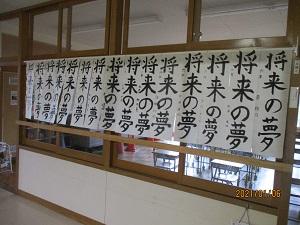 将来の夢
将来の夢
将来の夢
将来の夢
将来の夢
将来の夢
将来の夢
将来の夢
将来の夢
将来の夢
将来の夢
将来の夢
2021/01/06